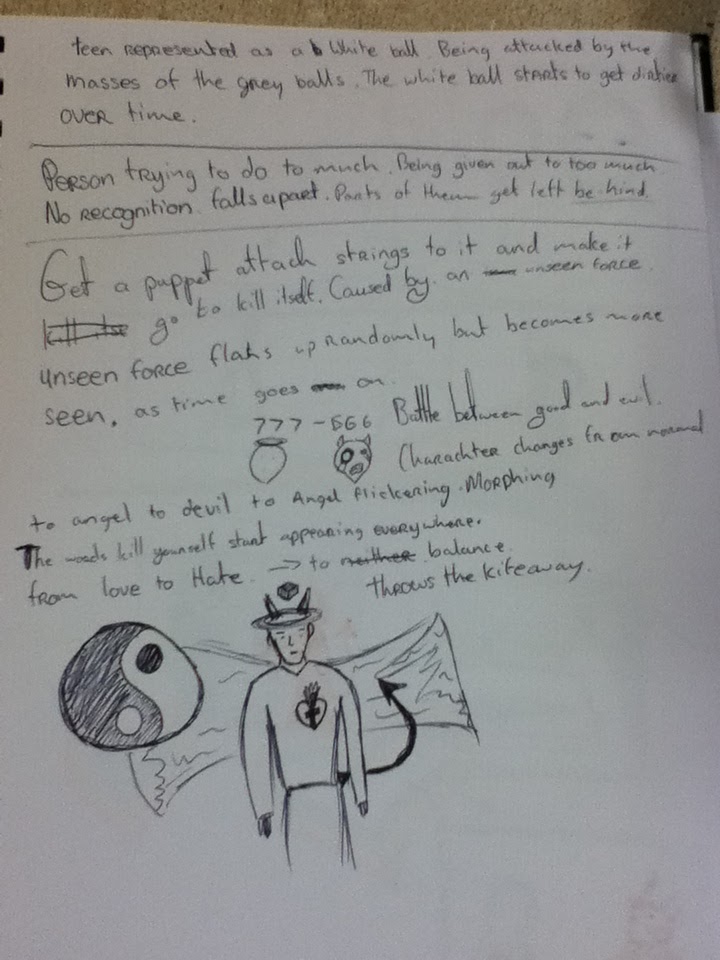 teen represented as a White ball. Being attacked by the
masses of the grey balls. The white ball starts to get dirtier
over time.
Person trying to do to much. Being given out to too much.
No recognition. falls apart. Parts of them get left behind.
Get a puppet attach strings to it and make it
go to kill itself. Caused by an unseen force.
unseen force flahs up randomly but becomes more
seen, as time goes on.
777 - 666 Battle between good and evil.
Charachter changes from normal
to angel to devil to Angel flickering. Morphing
The words kill yourself start appearing everywhere.
from love to Hate. → to balance.
throws the kife away.